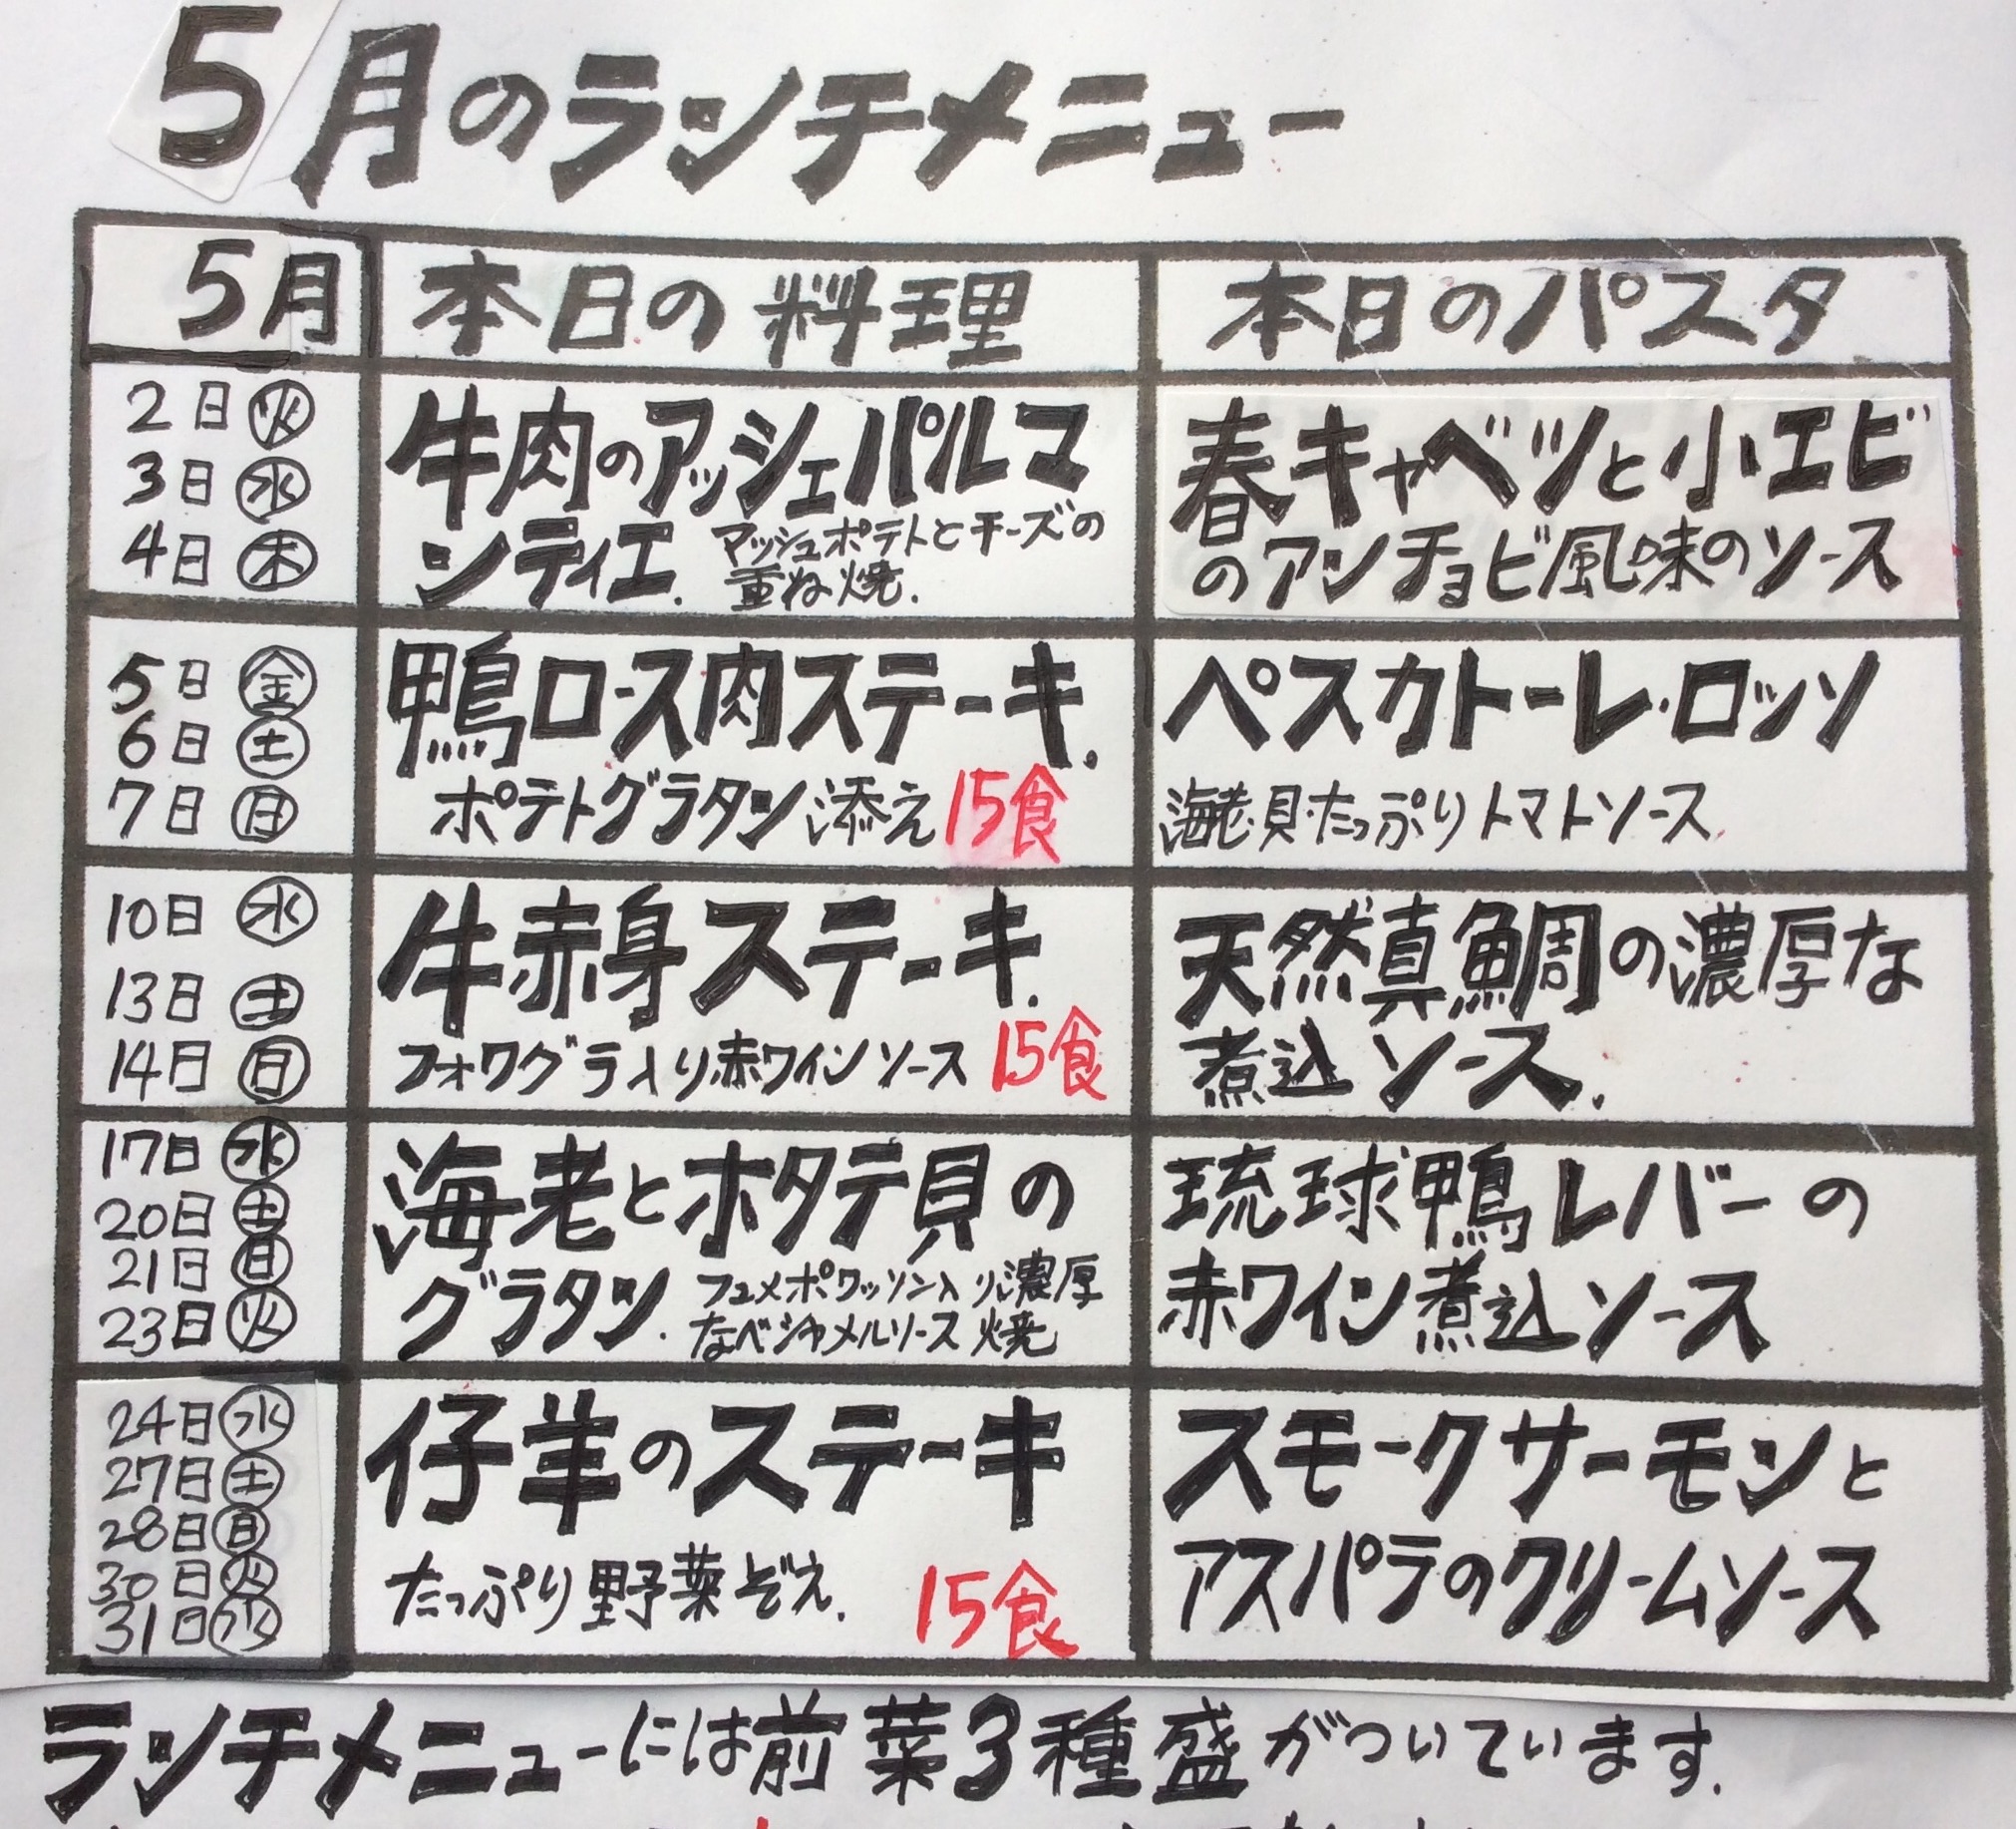 5月のランチメニュー
5月 本日の料理 本日のパスタ
2日㊋
3日㊌
4日㊍
牛肉のアッシェパルマ
ンティエ. マッシュポテトとチーズの
重ね焼.
春キャベツと小エビ
のアンチョビ風味のソース
5日㊎
6日㊏
7日㊐
鴨ロース肉ステーキ.
ポテトグラタン添え 15食
ペスカトーレ・ロッソ
海老・貝・たっぷりトマトソース
10日㊌
13日㊏
14日㊐
牛赤身ステーキ.
フォワグラ入り赤ワインソース 15食
天然真鯛の濃厚な
煮込ソース.
17日㊌
20日㊏
21日㊐
23日㊋
海老とホタテ貝の
グラタン. フュメポワッソン入り濃厚
なベシャメルソース焼
琉球鴨レバーの
赤ワイン煮込ソース
24日㊌
27日㊏
28日㊐
30日㊋
31日㊌
仔羊のステーキ
たっぷり野菜ぞえ.
15食
スモークサーモンと
アスパラのクリームソース
ランチメニューには前菜3種盛がついています.